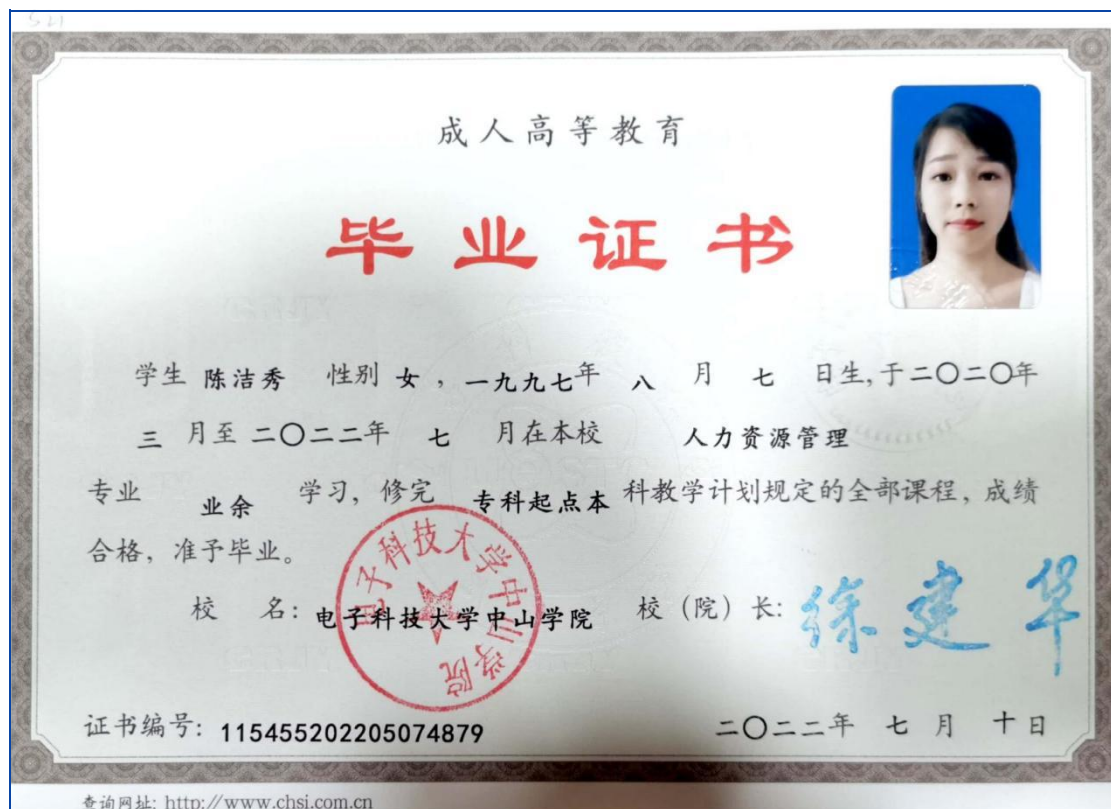 521
成人高等教育
毕业证书
学生 陈洁秀 性别 女 ，一九九七年 八 月 七 日生，于二〇二〇年
三 月至 二〇二二年 七 月在本校 人力资源管理
专业 业余 学习，修完 专科起点本 科教学计划规定的全部课程，成绩
合格，准予毕业。
校 名：电子科技大学中山学院 校（院）长：徐建华
电子科技大学中山学院
证书编号：115455202205074879 二〇二二年 七 月 十 日
查询网址: http://www.chsi.com.cn